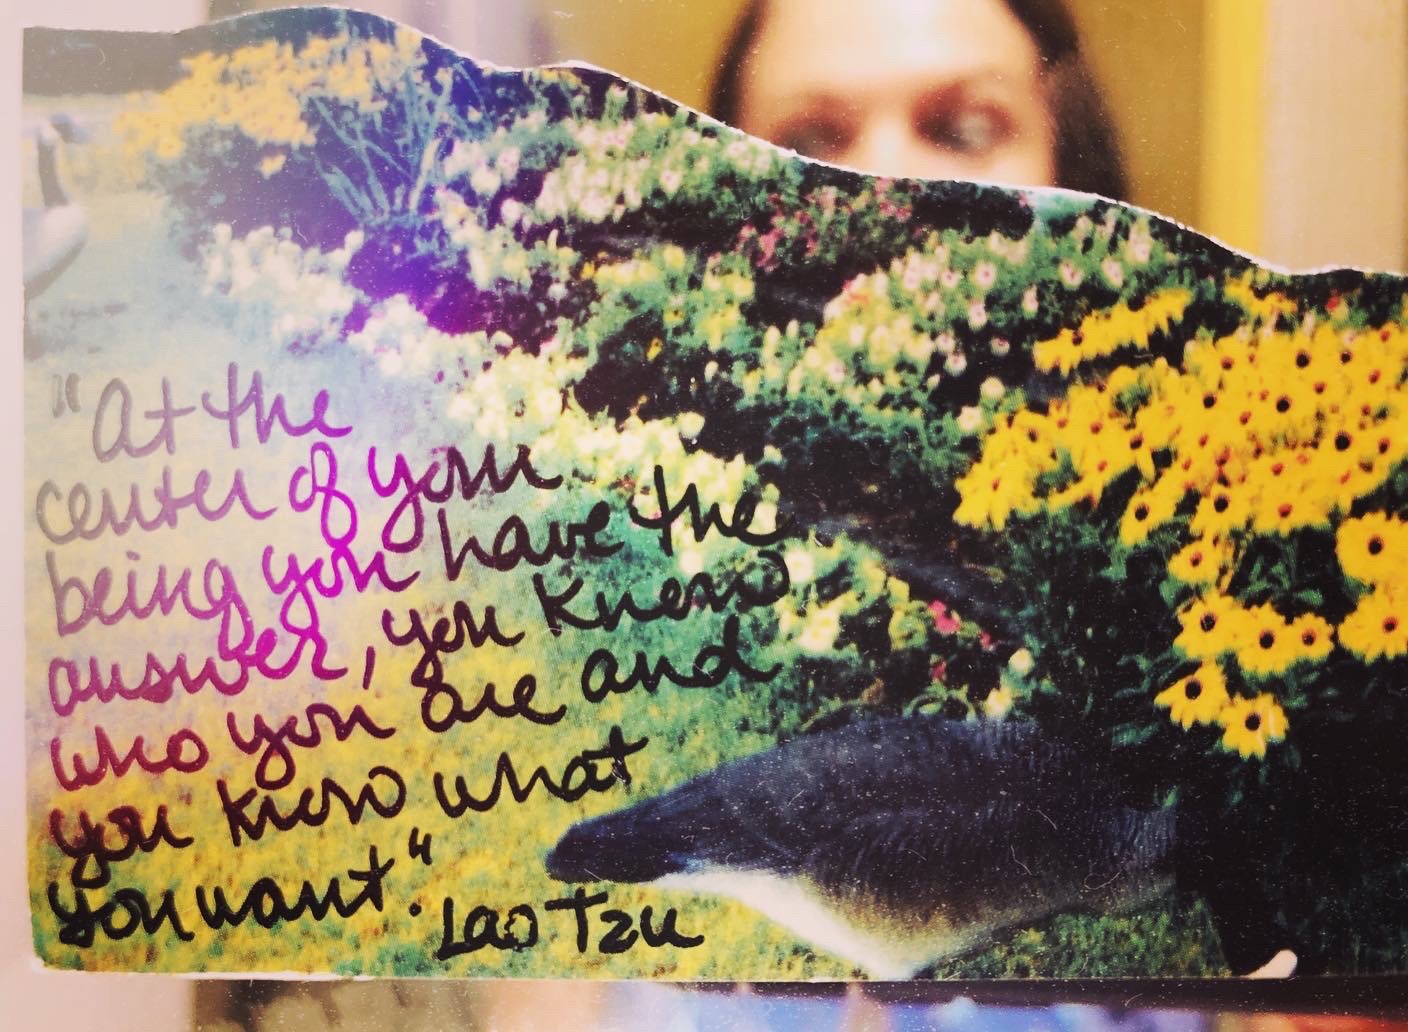 "At the
center of your
being you have the
answer, you know
who you are and
you know what
you want."
Lao Tzu